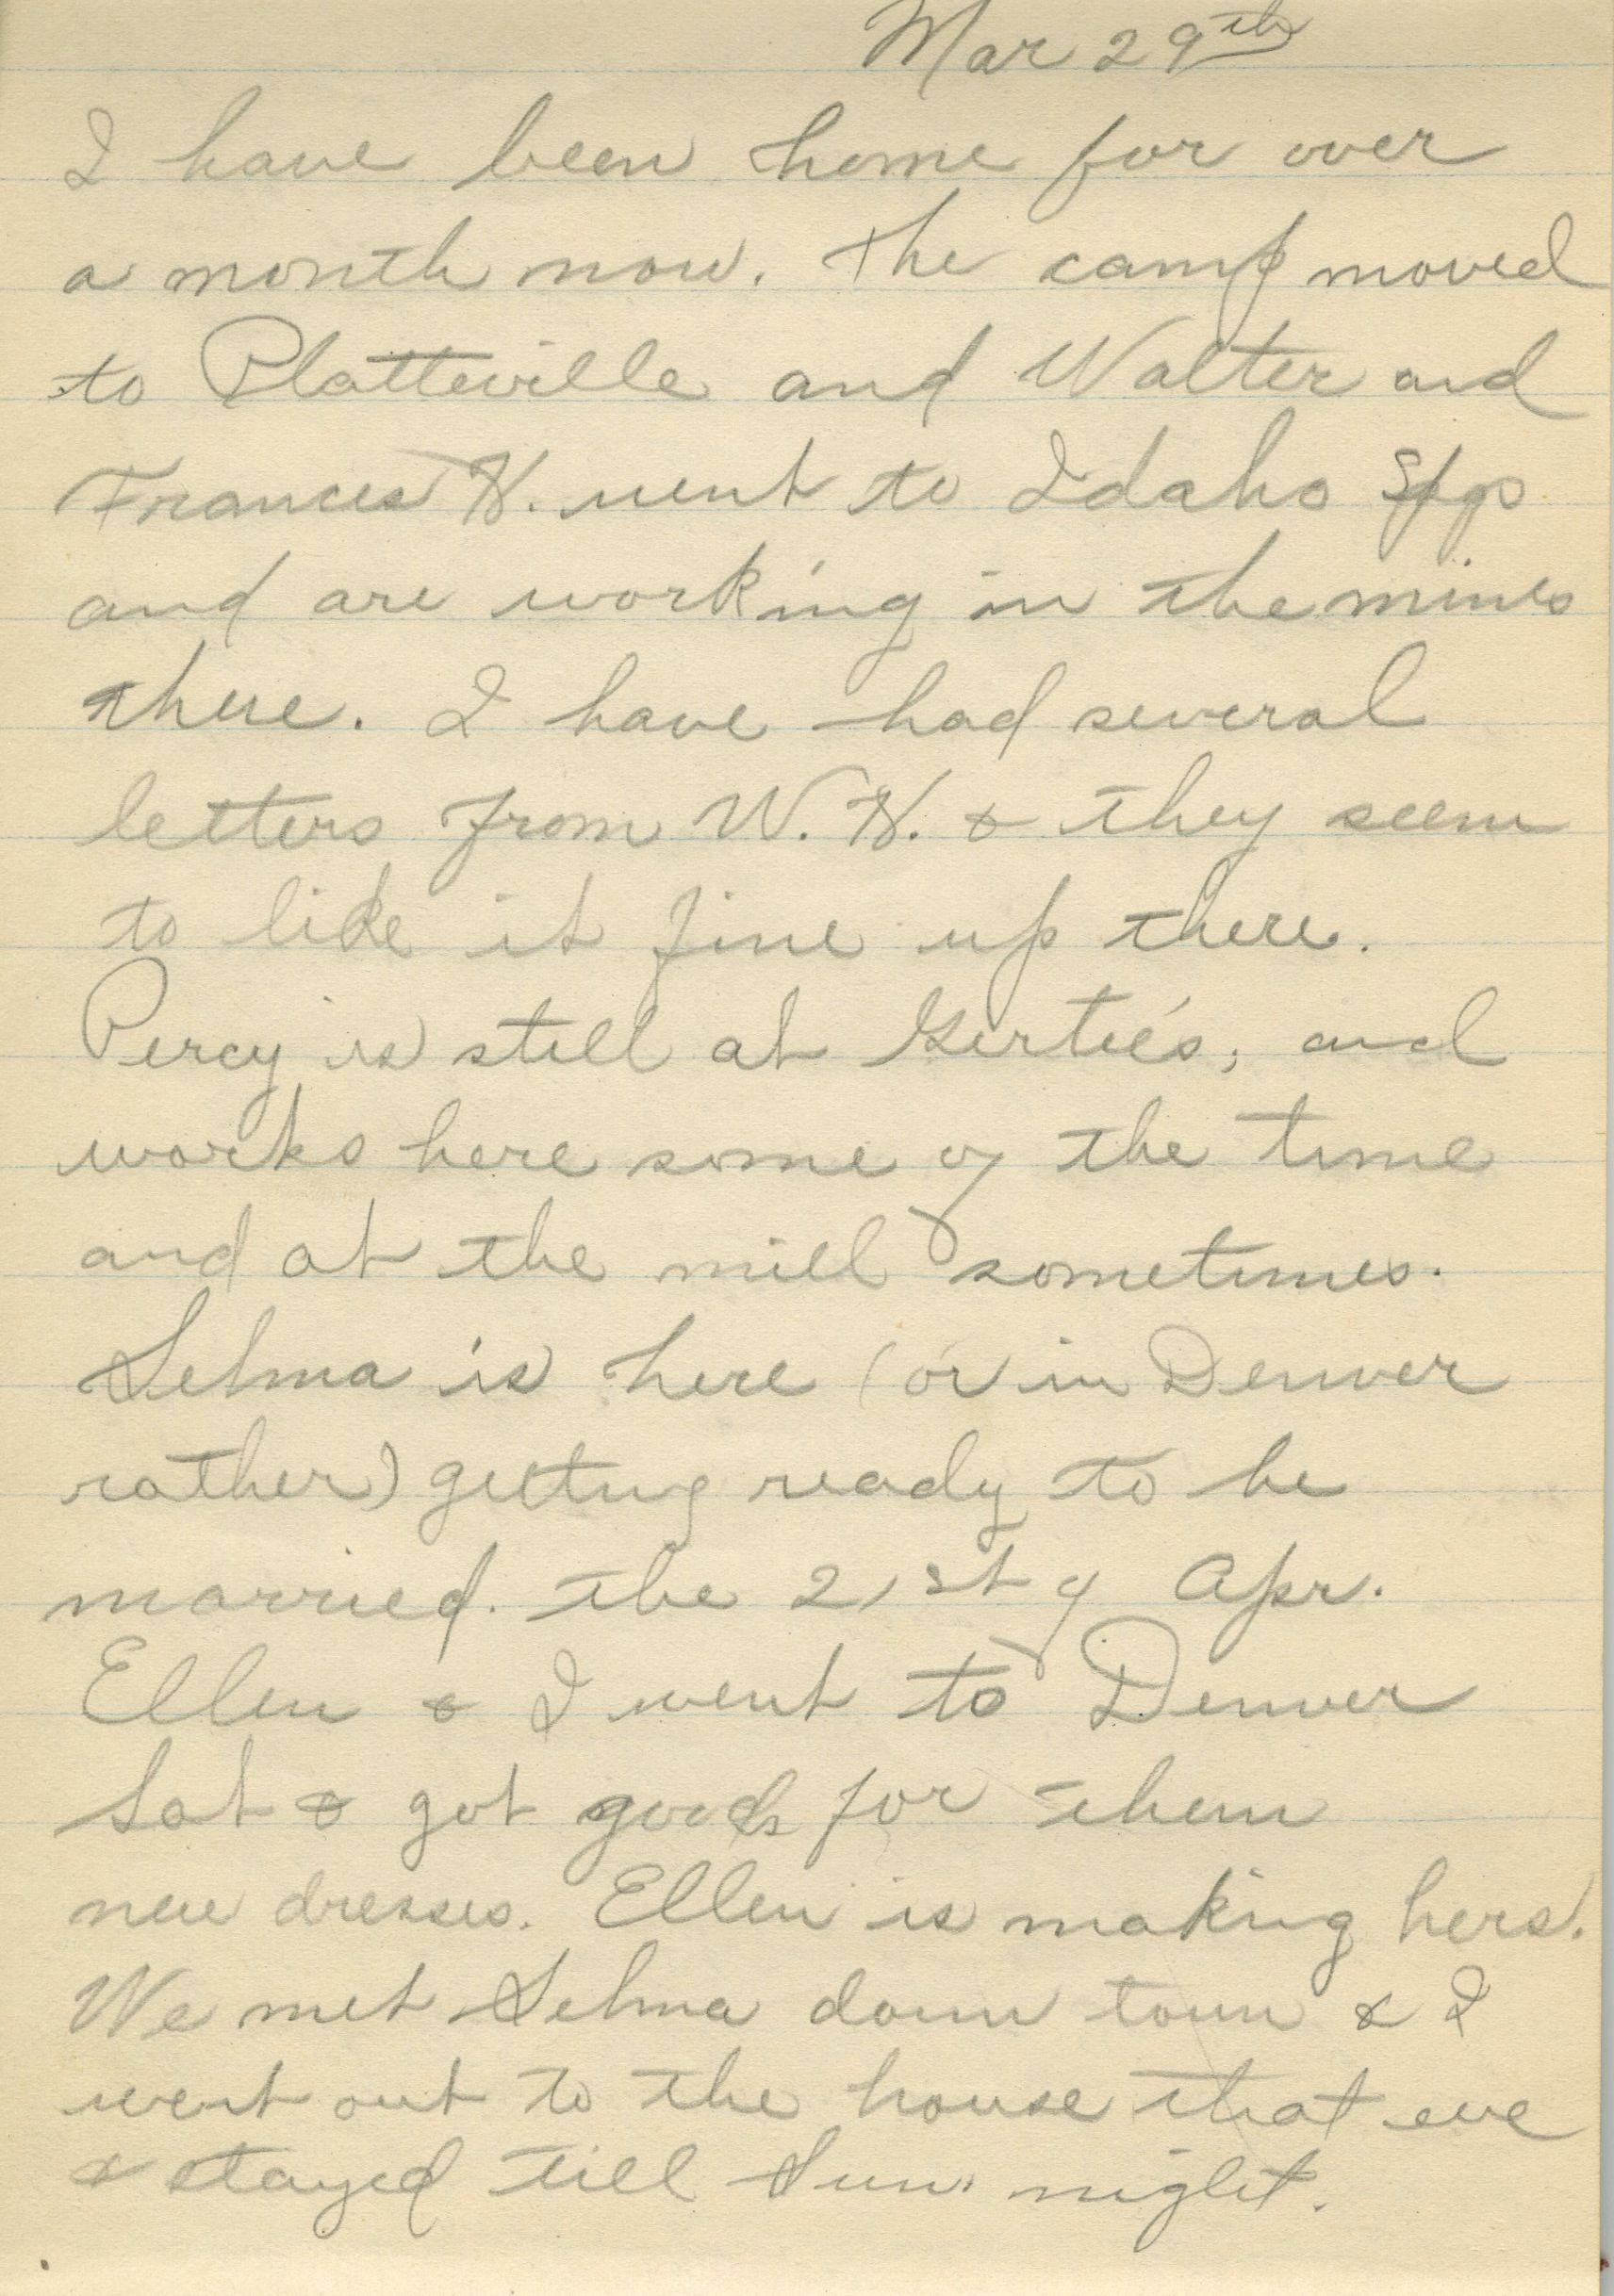 Mar 29th
I have been home for over
a month now. The camp moved
to Platteville and Walter and
Frances H. went to Idaho Spgs
and are working in the mines
there. I have had several
letters from W. H. & they seem
to like it fine up there.
Percy is still at Gertie's, and
works here some of the time
and at the mill sometimes.
Selma is here (or in Denver
rather) getting ready to be
married. the 21st of Apr.
Ellen & I went to Denver
Sat & got goods for them
new dresses. Ellen is making hers.
We met Selma down town & I
went out to the house that eve
& stayed till Sun. night.